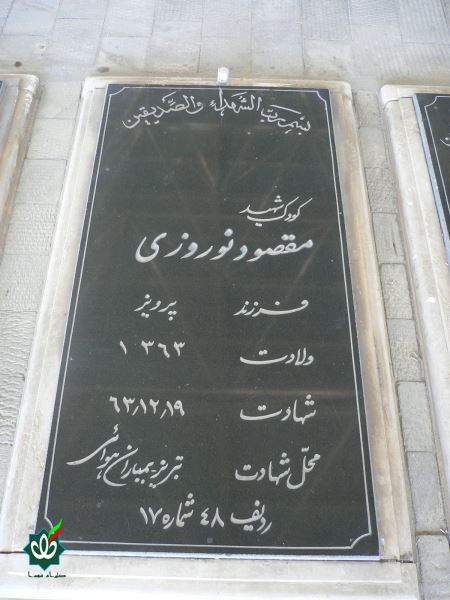 بسم رب الشهداء والصدیقین
کودک شهید
مقصود نوروزی
فرزند پرویز
ولادت ۱۳۶۳
شهادت ۶۳٫۱۲٫۱۹
محل شهادت تبریز بمباران هوائی
ردیف ۴۸ شماره ۱۷